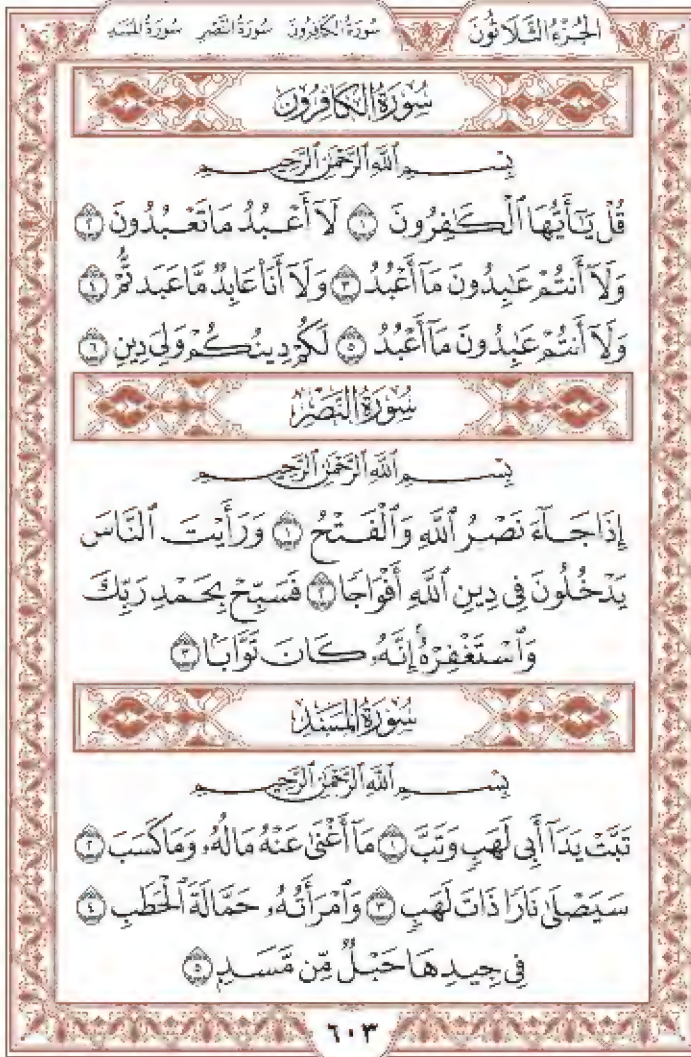 الجُزْءُ الثَّلَاثُونَ سُورَةُ الكَافِرُونَ سُورَةُ النَّصْرِ سُورَةُ المَسَدِ
سُورَةُ الكَافِرُونَ
بِسْمِ ٱللَّهِ ٱلرَّحْمَٰنِ ٱلرَّحِيمِ
قُلْ يَٰٓأَيُّهَا ٱلْكَٰفِرُونَ ١ لَآ أَعْبُدُ مَا تَعْبُدُونَ ٢
وَلَآ أَنتُمْ عَٰبِدُونَ مَآ أَعْبُدُ ٣ وَلَآ أَنَا۠ عَابِدٌ مَّا عَبَدتُّمْ ٤
وَلَآ أَنتُمْ عَٰبِدُونَ مَآ أَعْبُدُ ٥ لَكُمْ دِينُكُمْ وَلِىَ دِينِ ٦
سُورَةُ النَّصْرِ
بِسْمِ ٱللَّهِ ٱلرَّحْمَٰنِ ٱلرَّحِيمِ
إِذَا جَآءَ نَصْرُ ٱللَّهِ وَٱلْفَتْحُ ١ وَرَأَيْتَ ٱلنَّاسَ
يَدْخُلُونَ فِى دِينِ ٱللَّهِ أَفْوَاجًا ٢ فَسَبِّحْ بِحَمْدِ رَبِّكَ
وَٱسْتَغْفِرْهُ إِنَّهُۥ كَانَ تَوَّابًۢا ٣
سُورَةُ المَسَدِ
بِسْمِ ٱللَّهِ ٱلرَّحْمَٰنِ ٱلرَّحِيمِ
تَبَّتْ يَدَآ أَبِى لَهَبٍ وَتَبَّ ١ مَآ أَغْنَىٰ عَنْهُ مَالُهُۥ وَمَا كَسَبَ ٢
سَيَصْلَىٰ نَارًا ذَاتَ لَهَبٍ ٣ وَٱمْرَأَتُهُۥ حَمَّالَةَ ٱلْحَطَبِ ٤
فِى جِيدِهَا حَبْلٌ مِّن مَّسَدٍۭ ٥
٦٠٣